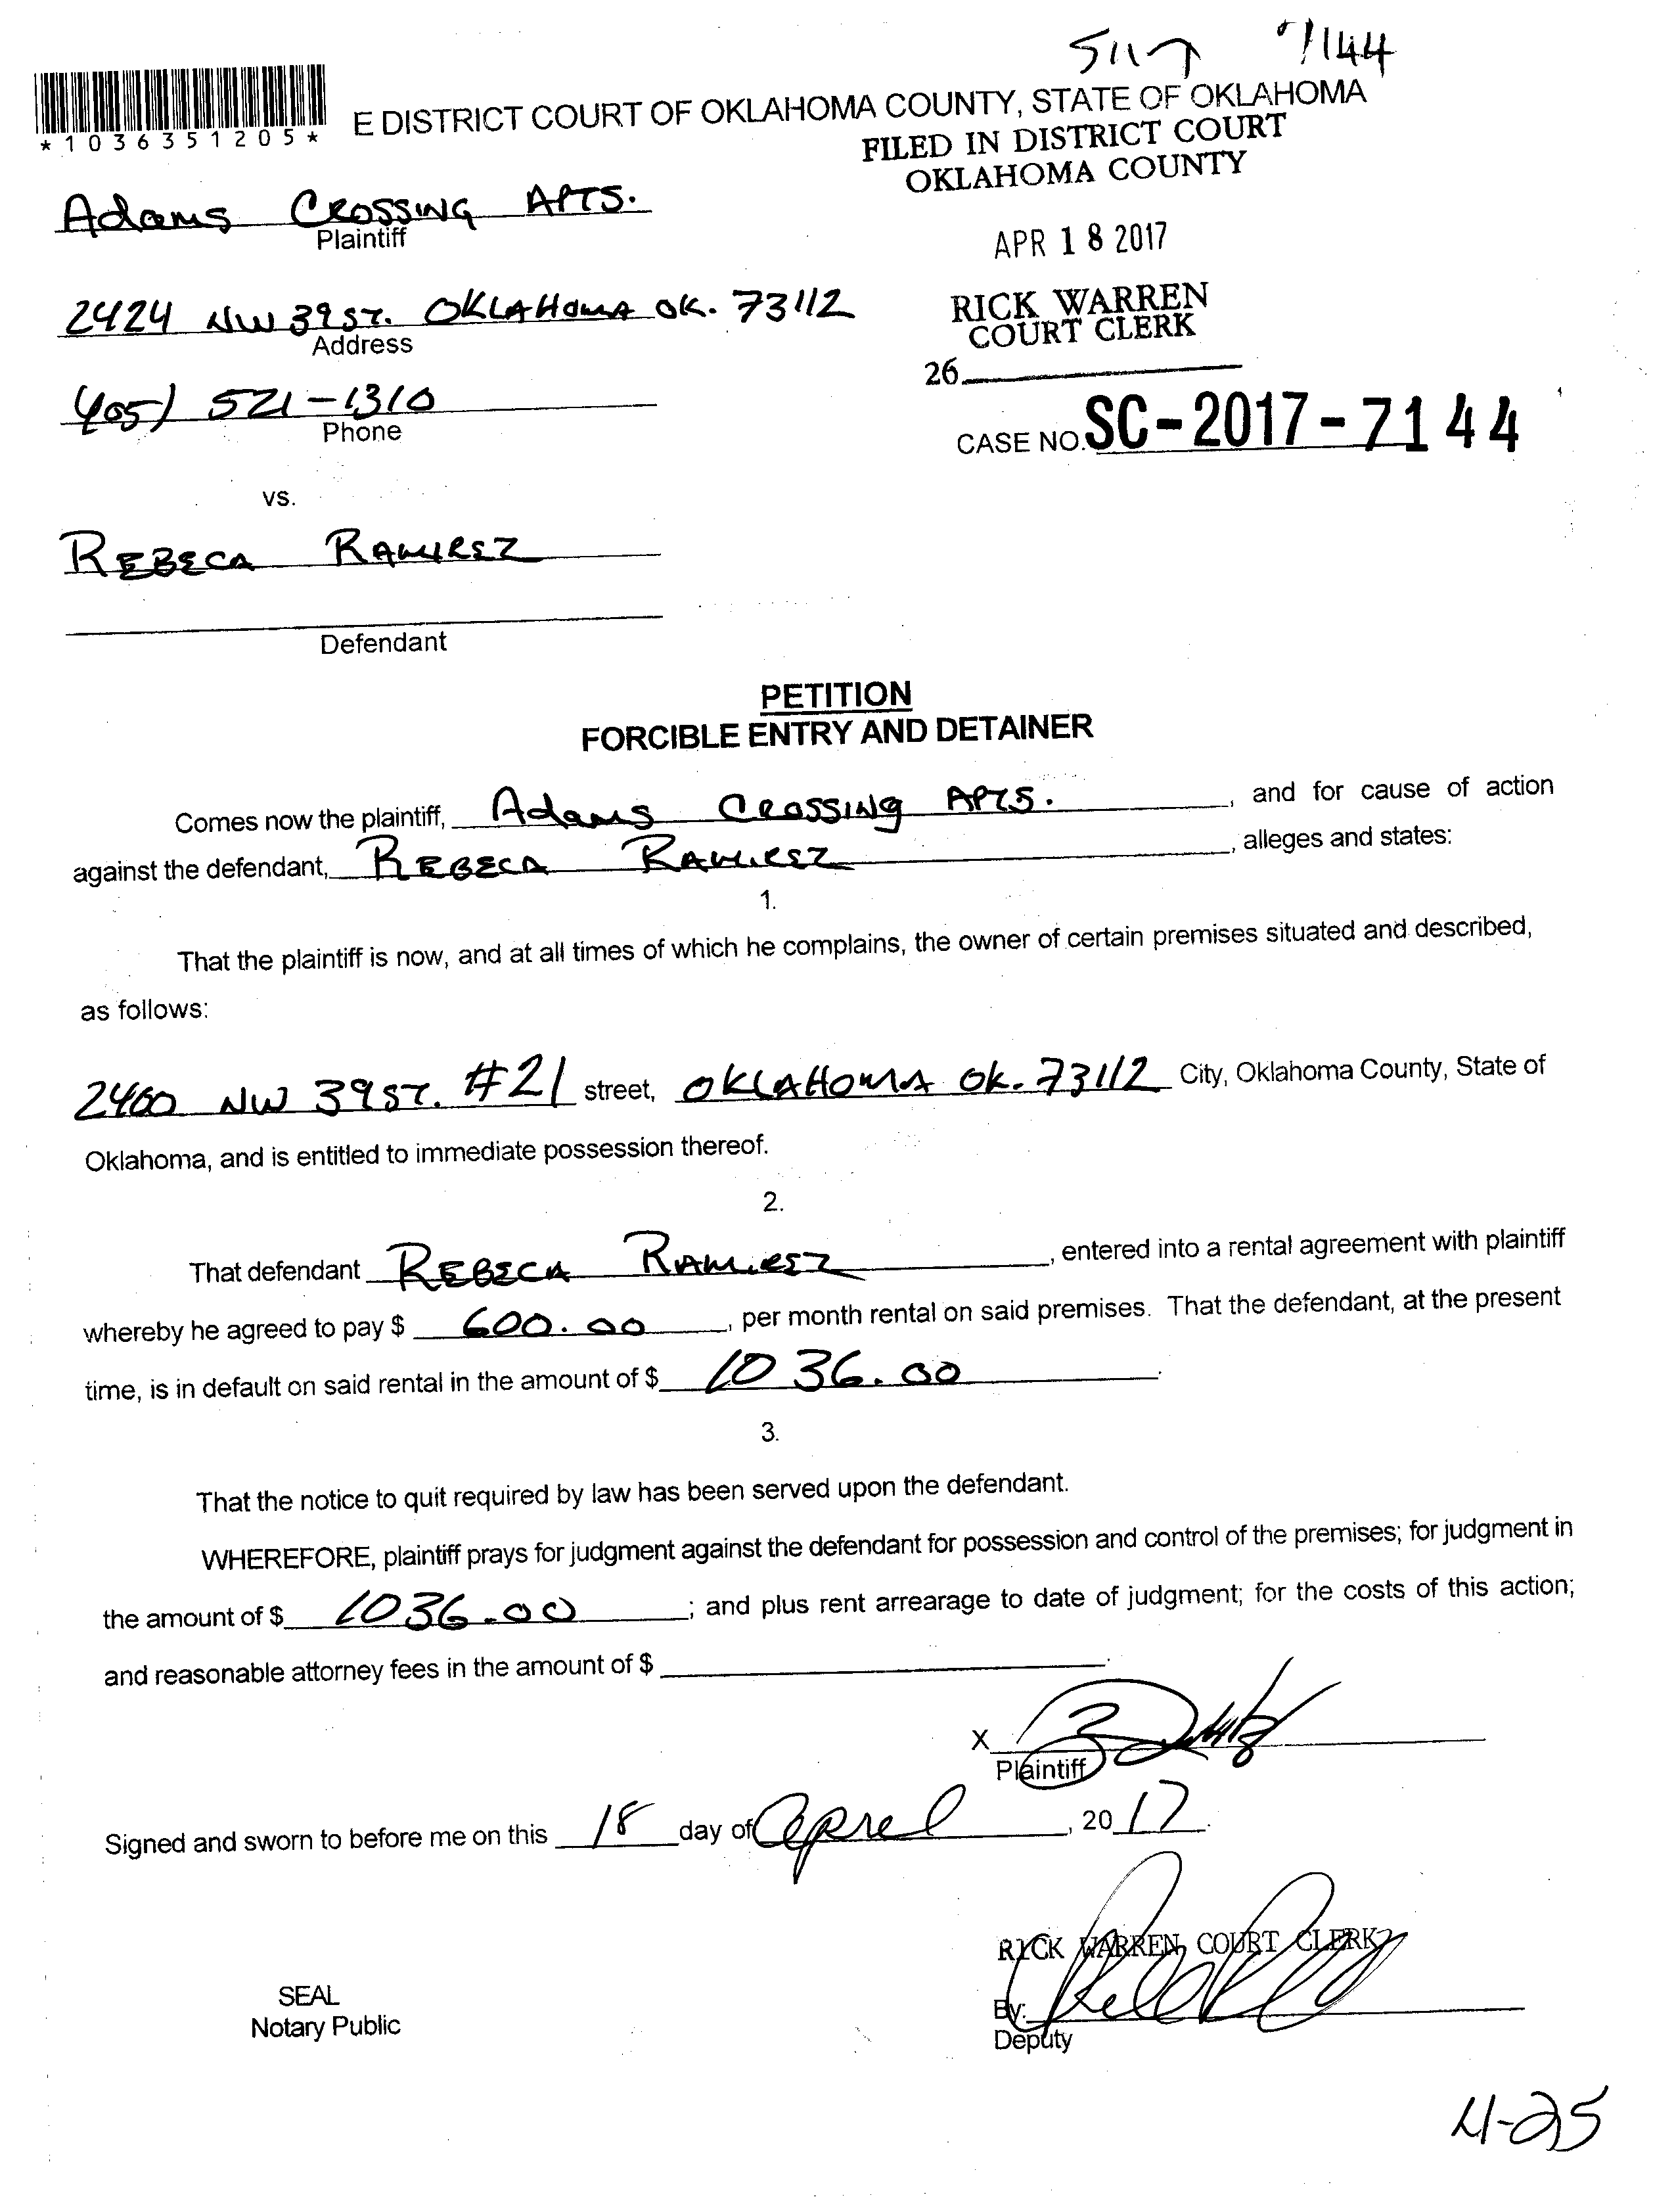 7144
*1036351205*
E DISTRICT COURT OF OKLAHOMA COUNTY, STATE OF OKLAHOMA
FILED IN DISTRICT COURT
OKLAHOMA COUNTY
Adams Crossing APTS.
Plaintiff
APR 18 2017
2424 NW 39 ST. OKLAHOMA OK. 73112
Address
RICK WARREN
COURT CLERK
26
405) 521-1310
Phone
CASE NO. SC-2017-7144
vs.
REBECA RAMIREZ
Defendant
PETITION
FORCIBLE ENTRY AND DETAINER
Comes now the plaintiff, Adams Crossing APTS. , and for cause of action
against the defendant, REBECA RAMIREZ , alleges and states:
1.
That the plaintiff is now, and at all times of which he complains, the owner of certain premises situated and described,
as follows:
2460 NW 39 ST. #21 street, OKLAHOMA OK. 73112 City, Oklahoma County, State of
Oklahoma, and is entitled to immediate possession thereof.
2.
That defendant REBECA RAMIREZ , entered into a rental agreement with plaintiff
whereby he agreed to pay $ 600.00 , per month rental on said premises. That the defendant, at the present
time, is in default on said rental in the amount of $ 1036.00 .
3.
That the notice to quit required by law has been served upon the defendant.
WHEREFORE, plaintiff prays for judgment against the defendant for possession and control of the premises; for judgment in
the amount of $ 1036.00 ; and plus rent arrearage to date of judgment; for the costs of this action;
and reasonable attorney fees in the amount of $ .
X
Plaintiff
Signed and sworn to before me on this 18 day of April , 2017.
RICK WARREN, COURT CLERK
SEAL
Notary Public
By:
Deputy
4-25